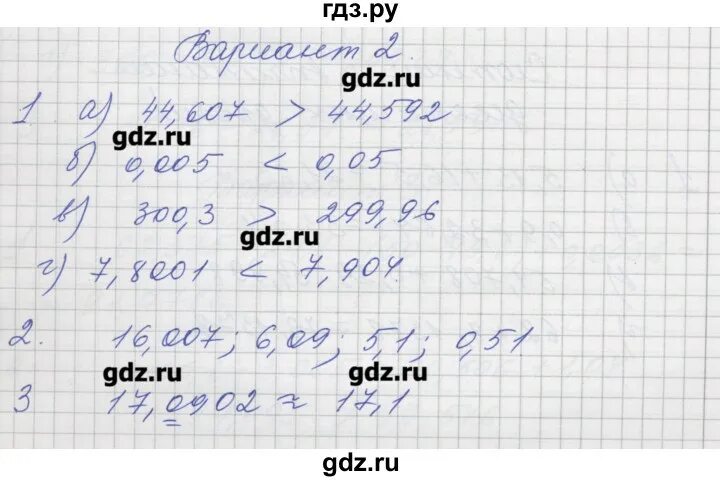 гдз.ру
Вариант 2.
gdz.ru
1. а) 44,607 > 44,592
gdz.ru
б) 0,005 < 0,05
в) 300,3 > 299,96
gdz.ru
г) 7,8001 < 7,904.
2. 16,007; 6,09; 5,1; 0,51
gdz.ru gdz.ru
3 17,0902 ≈ 17,1
gdz.ru